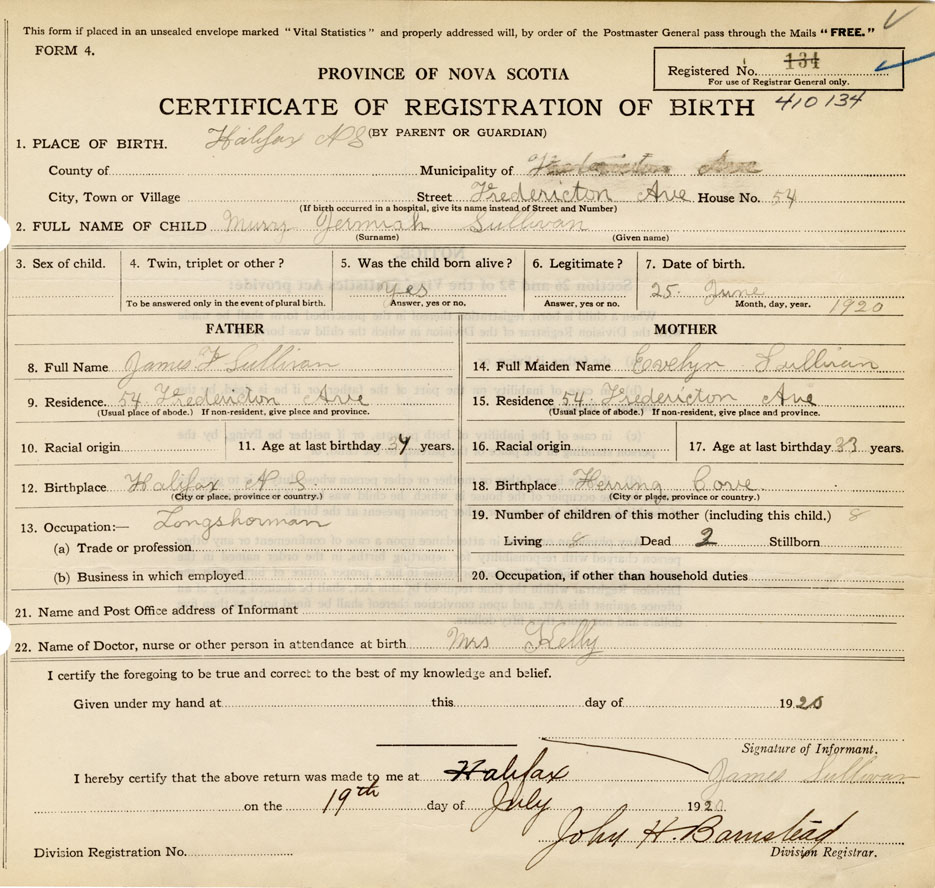 This form if placed in an unsealed envelope marked "Vital Statistics" and properly addressed will, by order of the Postmaster General pass through the Mails "FREE."
FORM 4.
Registered No. 134
For use of Registrar General only.
PROVINCE OF NOVA SCOTIA
CERTIFICATE OF REGISTRATION OF BIRTH 410134
(BY PARENT OR GUARDIAN)
1. PLACE OF BIRTH. Halifax N S
County of Municipality of Fredericton Ave
City, Town or Village Street Fredericton Ave House No. 54
(If birth occurred in a hospital, give its name instead of Street and Number)
2. FULL NAME OF CHILD Murry Jermiah Sullivan
(Surname) (Given name)
3. Sex of child. 4. Twin, triplet or other? 5. Was the child born alive? 6. Legitimate? 7. Date of birth.
yes 25. June 1920
To be answered only in the event of plural birth. Answer, yes or no. Answer, yes or no. Month, day, year.
FATHER MOTHER
8. Full Name James F Sullivan 14. Full Maiden Name Evelyn Sullivan
9. Residence 54 Fredericton Ave 15. Residence 54 Fredericton Ave
(Usual place of abode.) If non-resident, give place and province. (Usual place of abode.) If non-resident, give place and province.
10. Racial origin 11. Age at last birthday years. 16. Racial origin 17. Age at last birthday 33 years.
12. Birthplace Halifax N S. 18. Birthplace Herring Cove
(City or place, province or country.) (City or place, province or country.)
13. Occupation:— Longshorman 19. Number of children of this mother (including this child.) 8
(a) Trade or profession Living 8 Dead 2 Stillborn
(b) Business in which employed 20. Occupation, if other than household duties
21. Name and Post Office address of Informant
22. Name of Doctor, nurse or other person in attendance at birth Mrs Kelly
I certify the foregoing to be true and correct to the best of my knowledge and belief.
Given under my hand at this day of 1920
Signature of Informant.
I hereby certify that the above return was made to me at Halifax James Sullivan
on the 19th day of July 1920
John H. Barnstead
Division Registration No. Division Registrar.